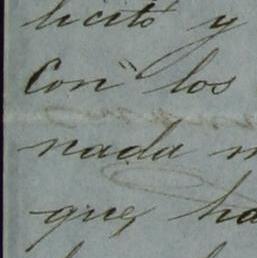 licitó y
Con los
nada
que, ha